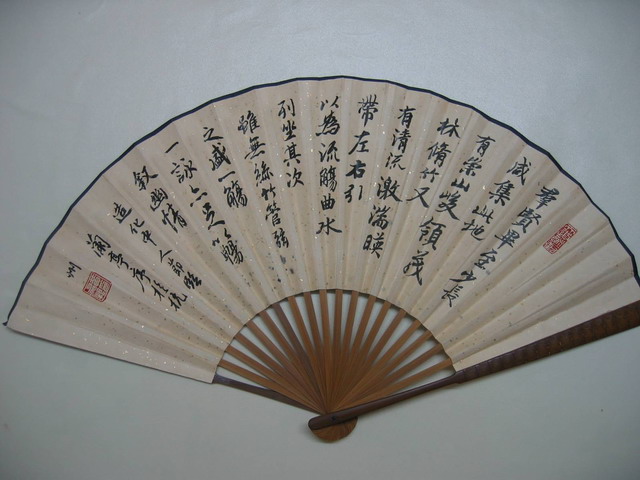 羣賢畢至少長
咸集此地
有崇山峻領茂
林脩竹又
有清流激湍暎
帶左右引
以為流觴曲水
列坐其次
雖無絲竹管弦
之盛一觴
一詠亦足以暢
敘幽情
造化中人
蘭亭序於杭
州